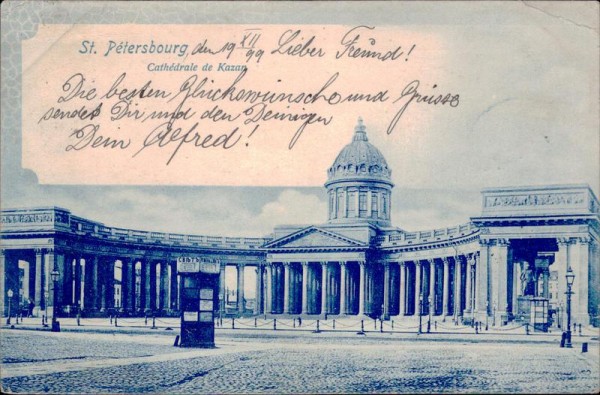 St. Pétersbourg den 19 XII/99 Lieber Freund!
Cathédrale de Kazan
Die besten Glückswünsche und Grüsse
sendet Dir und den Deinigen
Dein Alfred!